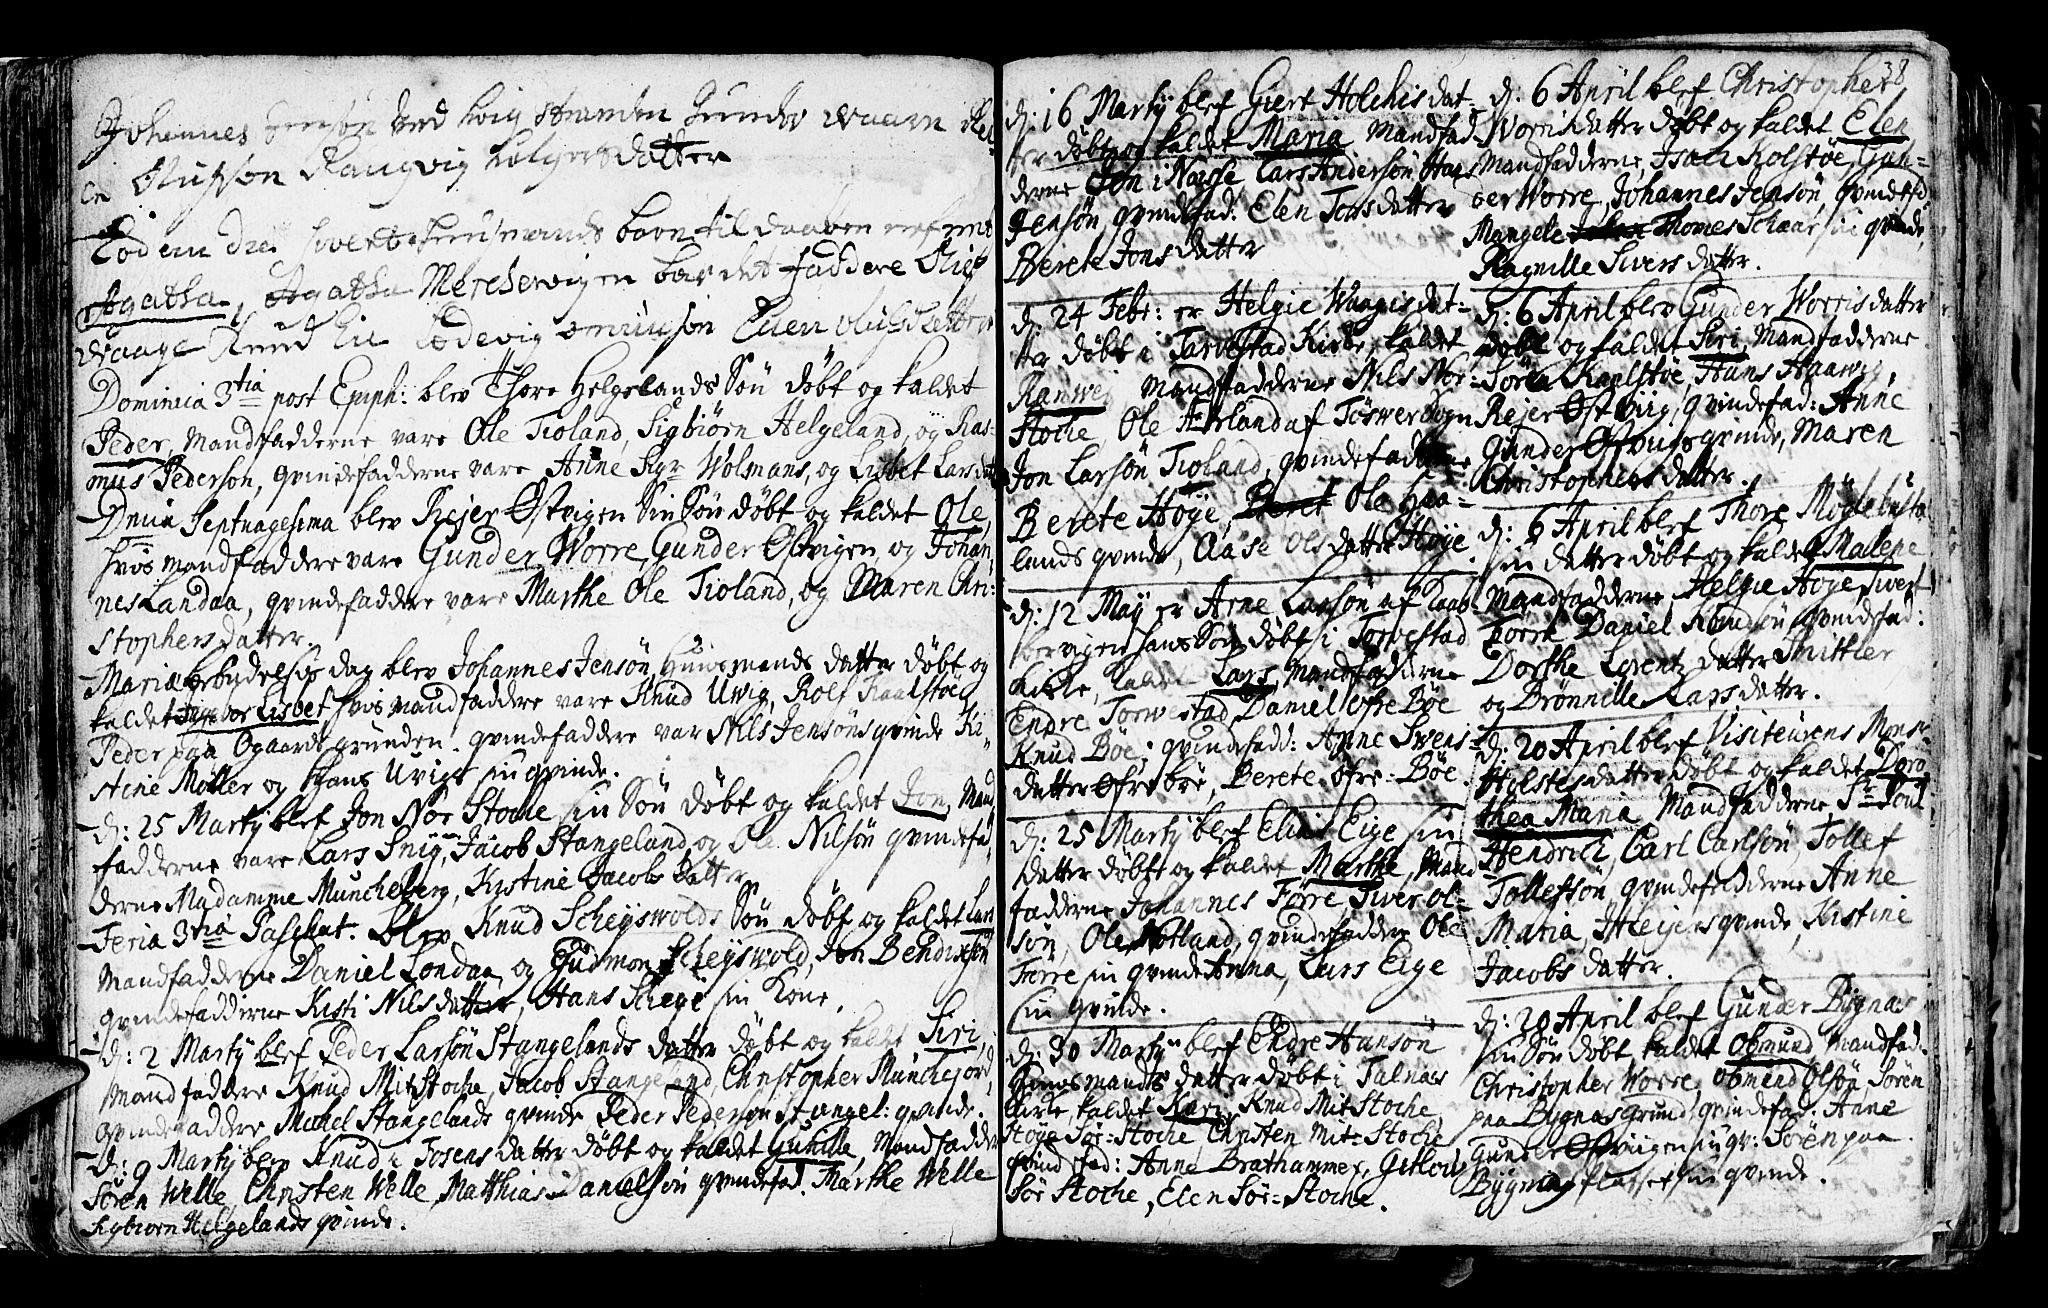 Johannes Jensøn ved hvig stranden Gunder waare
Olufsøn Rangvig Holgers datter
Eodem die Sivert huusmands barn til daaben nefnt
Agatha, Agatha Mercherwigen bar det faddere Oluf
Waage Knud Lie Lodevig Omunsøn Ellen Olufsdatter
Dominica 3tia post Epiph: blev Thore Helgelands Søn døbt og kaldet
Peder, mandfadderne vare Ole Tioland, Sigbiørn Helgeland, og Ras-
mus Pedersøn, qvindefadderne vare Anne Sigr Wolmans, og Lisbet Lars dat
Dnica Septuagesima blev Rejer Østvigen Sin Søn døbt og kaldet Ole,
hvis mandfaddere vare Gunder Worre, Gunder Østvigen, og Johan-
nes Landaa, qvindefaddere vare Marthe Ole Tioland, og Maren Chri-
stophers datter.
Mariæ bebudelses dag blev Johannes Jensøn Huusmands datter døbt og
kaldet Lisbet hvis mandfaddere vare Knud Uvig, Rolf Kaalstøe,
Peder paa Ogaards grunden. qvindefaddere var Nils Jensøns qvinde Ki-
stine Møller og Hans Uvigs sin qvinde.
d: 25 Martij blef Jon Nor Stoche sin Søn døbt og kaldet Jon, Mand
fadderne vare Lars Snig, Jacob Stangeland, og Ole Nilsøn qvindefad
derne Madamme Muncheberg, Kistine Jacobs datter
Feria 3tia Paschat. blev Knud Scheyswolds Søn døbt og kaldet Lars
mandfadderne Daniel Londaa og Gudmon Scheyswold, Jon Bendixsøn
qvindefadderne Kisti Nils datter, Hans Schege sin Kone.
d: 2 Martij blef Peder Larsøn Stangelands datter døbt og kaldet Siri,
mandfaddere Knud Mit Stoche, Jacob Stangeland, Christopher Munchejord,
qvindefaddere Mallel Stangelands qvinde Peder Pedersøn Stangel: qvinde.
d: 9 Martij blev Knud i Tosens datter døbt og kaldet Gunille, Mandfadder
Søren Welle, Christen Welle, Matthias Danielsøn qvindefad. Marthe Welle
Sigbiørn Helgelands qvinde.
38
d: 16 Martij blef Giert Holches dat-
ter døbt og kaldet Maria Mandfad-
derne Jon i Naese Lars Andersøn Hans
Jensøn, qvindefad: Elen Torsdatter
Berete Jons datter
d: 24 Febr: er Helgie Waagis dat-
ter døbt i Tarvestad Kirke, kaldet
Ranweg Mandfadderne Nils Nor-
Stoche, Ole Hærland af Toswer Sogn
Jon Larsøn Tioland, qvindefadderne
Berete Høye, Ole Haa-
lands qvinde, Aase Ols datter Høye
d: 12 Maij er Arne Larsøn af
vigen hans Søn døbt i Torvestad
Kirke, kaldet Lars, Mandfadderne
Endre Torwestad, Daniel Øfre Bøe
Knud Bøe, qvindefadd: Anne Swens-
datter Øfre bøe, Berete Øfre-Bøe.
d: 25 Martij blef Elias Eige sin
datter døbt og kaldet Marthe, Mand
fadderne Johannes Førre Siver Ol-
søn, Ole Notland, qvindefaddere Ole
Førre sin qvinde Anna, Lars Eige
sin Qvinde.
d: 30 Martij blef Endre Hansøn
Huusmands datter døbt i Falnæs
Kirke, kaldet Kari, Knud Mit Stoche
Høye Sør-Stoche Christen Mit-Stoche
qvindfad: Anne Brathammer, Gitlow
Sør Stoche, Elen Sør-Stoche.
d: 6 April blef Christopher
Worris datter døbt og kaldet Elen
Mandfadderne, Isach Kolstøe, Gun-
der Worre, Johannes Jensøn, qvindefad
Mangele Thomes Schaar sin qvinde,
Ragnille Sivers datter.
d: 6 April blev Gunder Worris datter
døbt og kaldet Siri, Mandfadderne
Søren Kaalstøe, Hans Haaweg,
Rejer Østviig, qvindefad: Anne
Gunder Østwigs qvinde, Maren
Christophers datter.
d: 6 April blef Thore Møglebusta
sin datter døbt og kaldet Mallene
Mandfadderne Helgie Høye Sivert
Førre Daniel Knudsøn qvindefad:
Dorthe Lorentz datter
og Brønnelle Lars datter.
d: 20 April blef Visiteurens Monsr
Holstes datter døbt og kaldet Doro-
thea Maria, Mandfadderne Sr Poul
Hendrich, Carl Carlsøn, Tollef
Tollefsøn qvindefadderne Anne
Maria, Meyers qvinde, Kistine
Jacobs datter.
d: 20 April blef Gunder Bygnæs
sin Søn døbt kaldet Obmund, Mandfad.
Christopher Worre, Obmund Olsøn Søren
paa Bygnæs grund, qvindefad: Anne
Gunder Østviigen sin qv: Søren paa
Bygnes plasse sin qvinde.